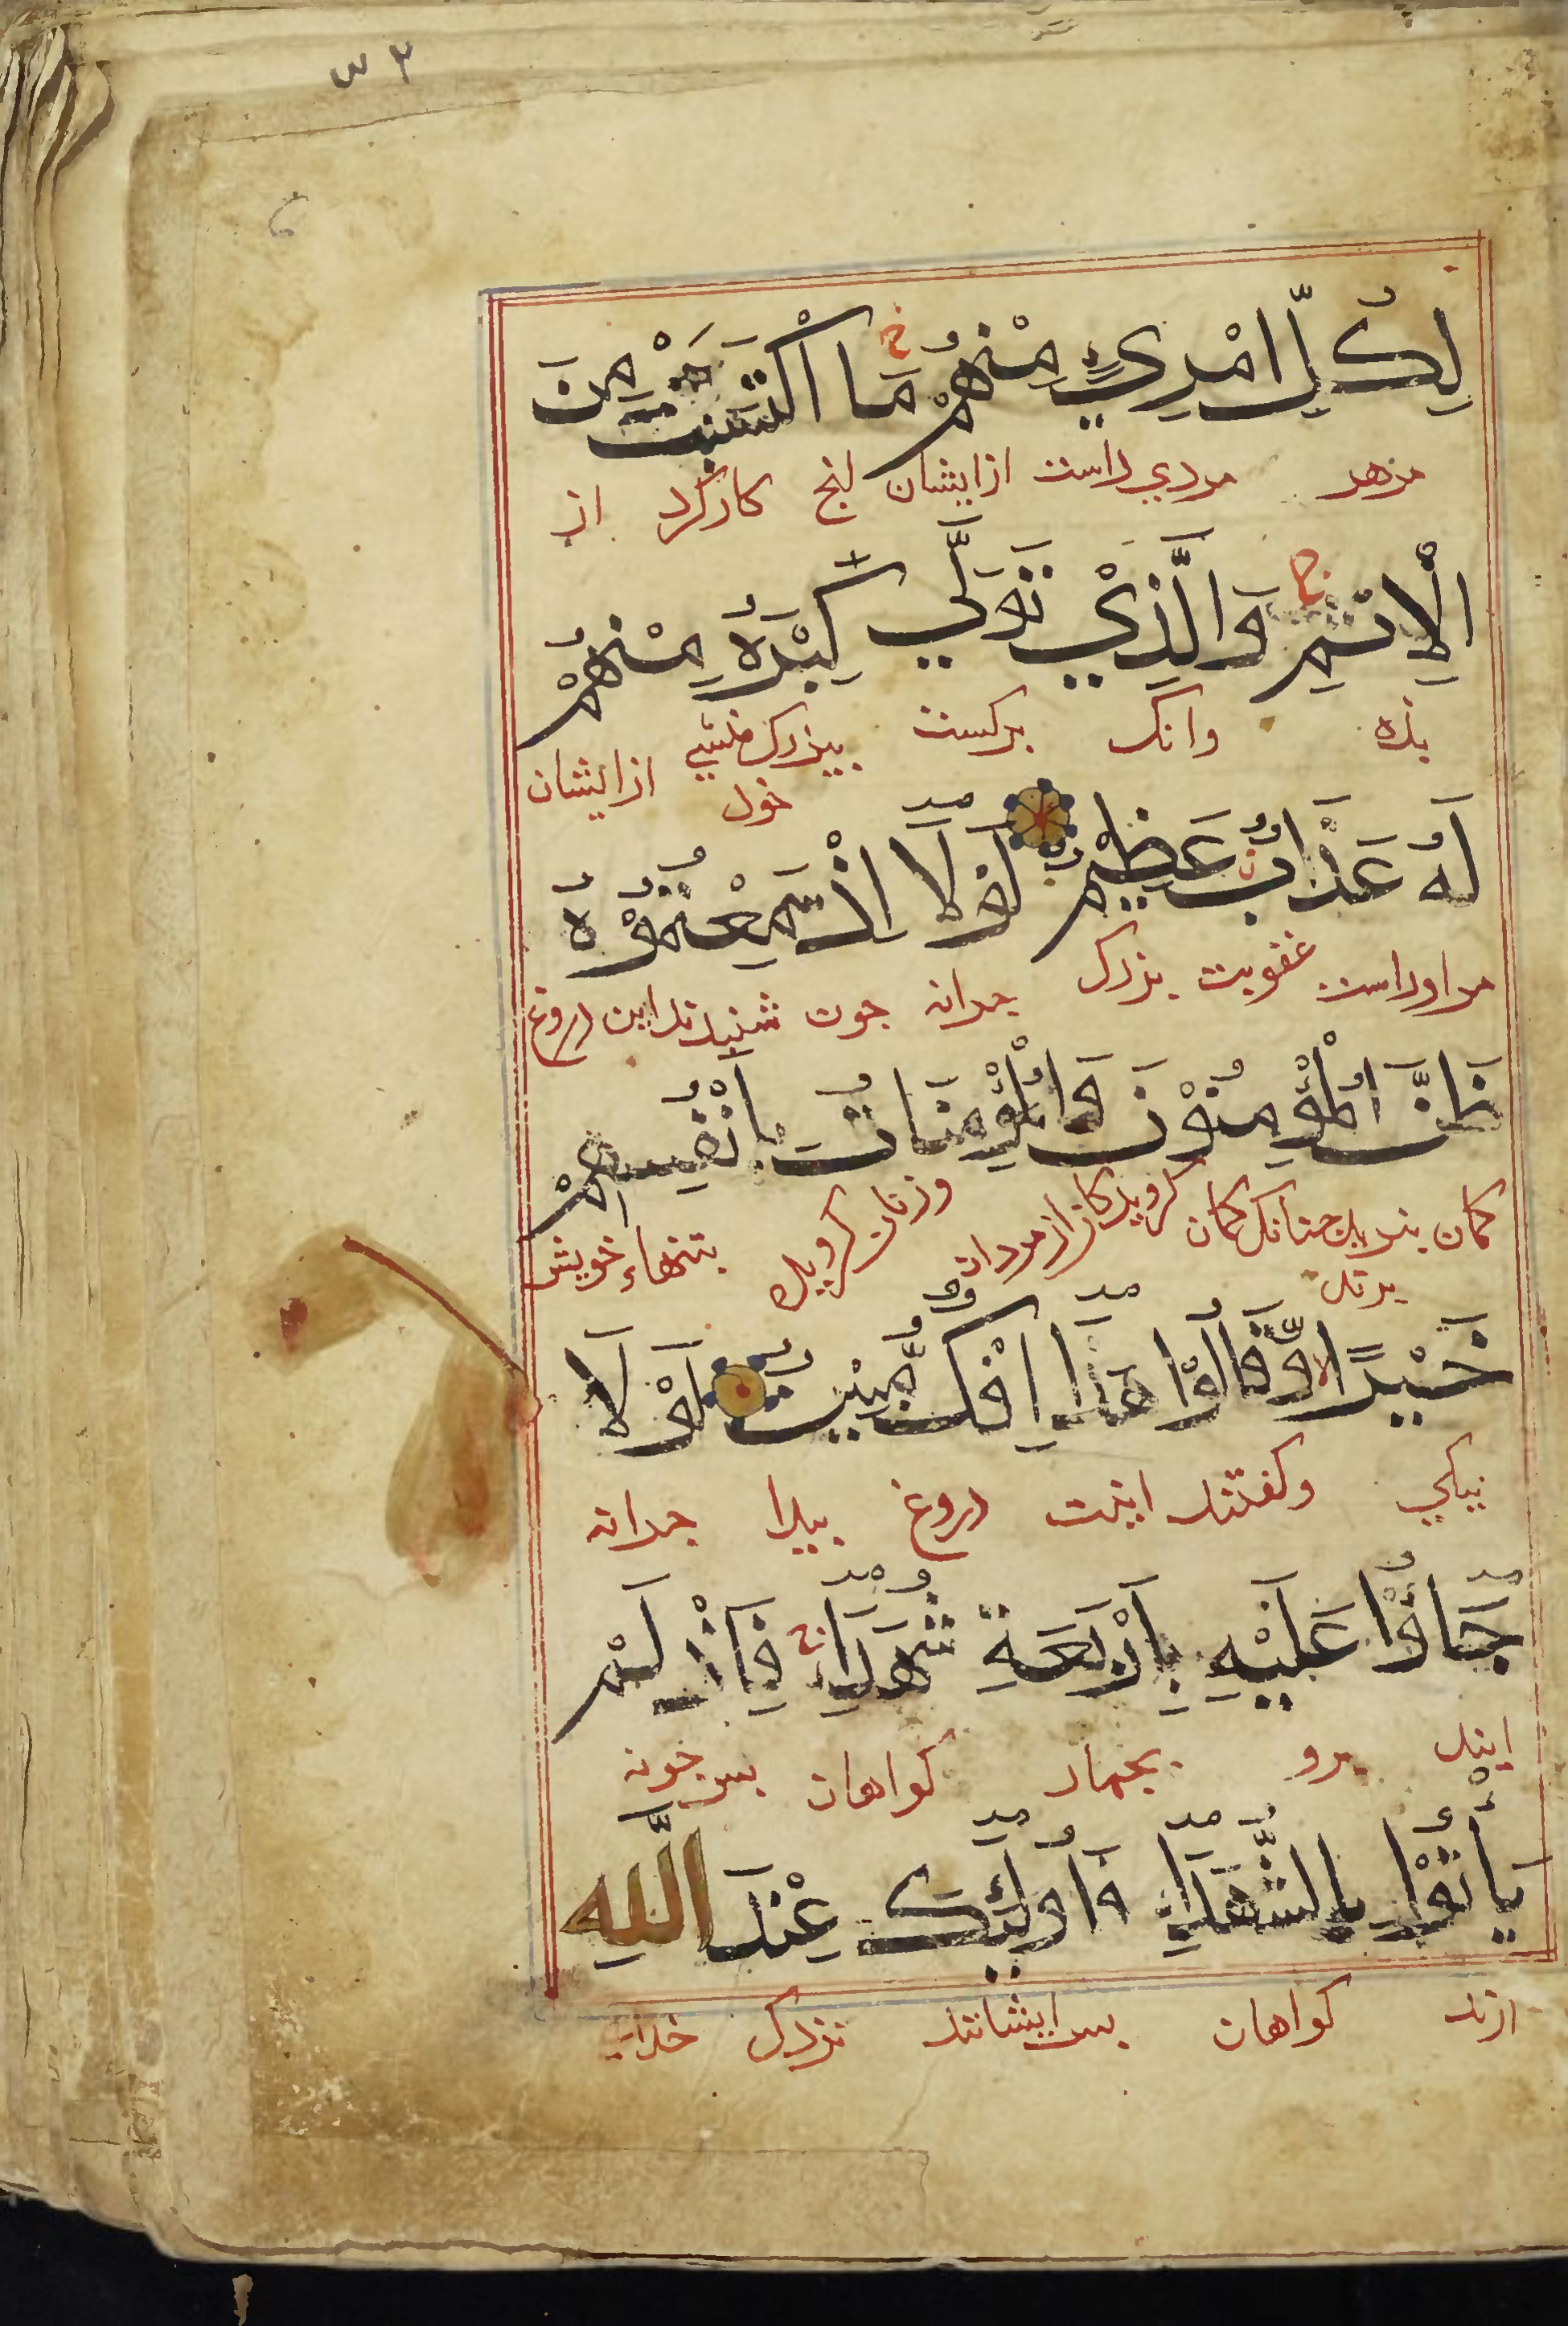 ۳ س
لِكُلِّ امْرِئٍ مِنْهُمْ مَا اكْتَسَبَ مِنَ
مرهر مردي راست ازایشان انج کارکرد از
الْاِثْمِ وَالَّذِيْ تَوَلّٰي كِبْرَهُ مِنْهُمْ
بزه وانک برکست بیزرک ازایشان
لَهُ عَذَابٌ عَظِيْمٌ لَوْلَا اِذْ سَمِعْتُمُوْهُ
مراوراست عقوبت بزرک جرانه جون شنیدند این دروغ
ظَنَّ الْمُؤْمِنُوْنَ وَالْمُؤْمِنَاتُ بِاَنْفُسِهِمْ
کمان جنانک کمان کرویدکان ازمردان وزنان کرویده بتنهاء خویش
برند
خَيْرًا وَّقَالُوْا هٰذَا اِفْكٌ مُّبِيْنٌ لَوْلَا
نیکي وکفتند اینت دروغ بیدا جرانه
جَاؤُا عَلَيْهِ بِاَرْبَعَةِ شُهَدَاءَ فَاِذْ لَمْ
ایند برو بجهار کواهان بس جونه
يَأْتُوْا بِالشُّهَدَاءِ فَاُولٰئِكَ عِنْدَ اللّٰهِ
ارند کواهان بس ایشانند نزدیک خدای